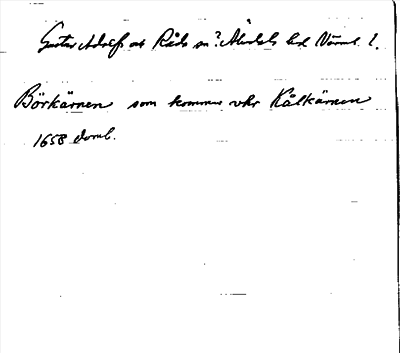 Gustav Adolf och Råda sn? Älvdals hd Värml. l.
Börkärnen som kommer vkr Kålkärnen
1658 domb.